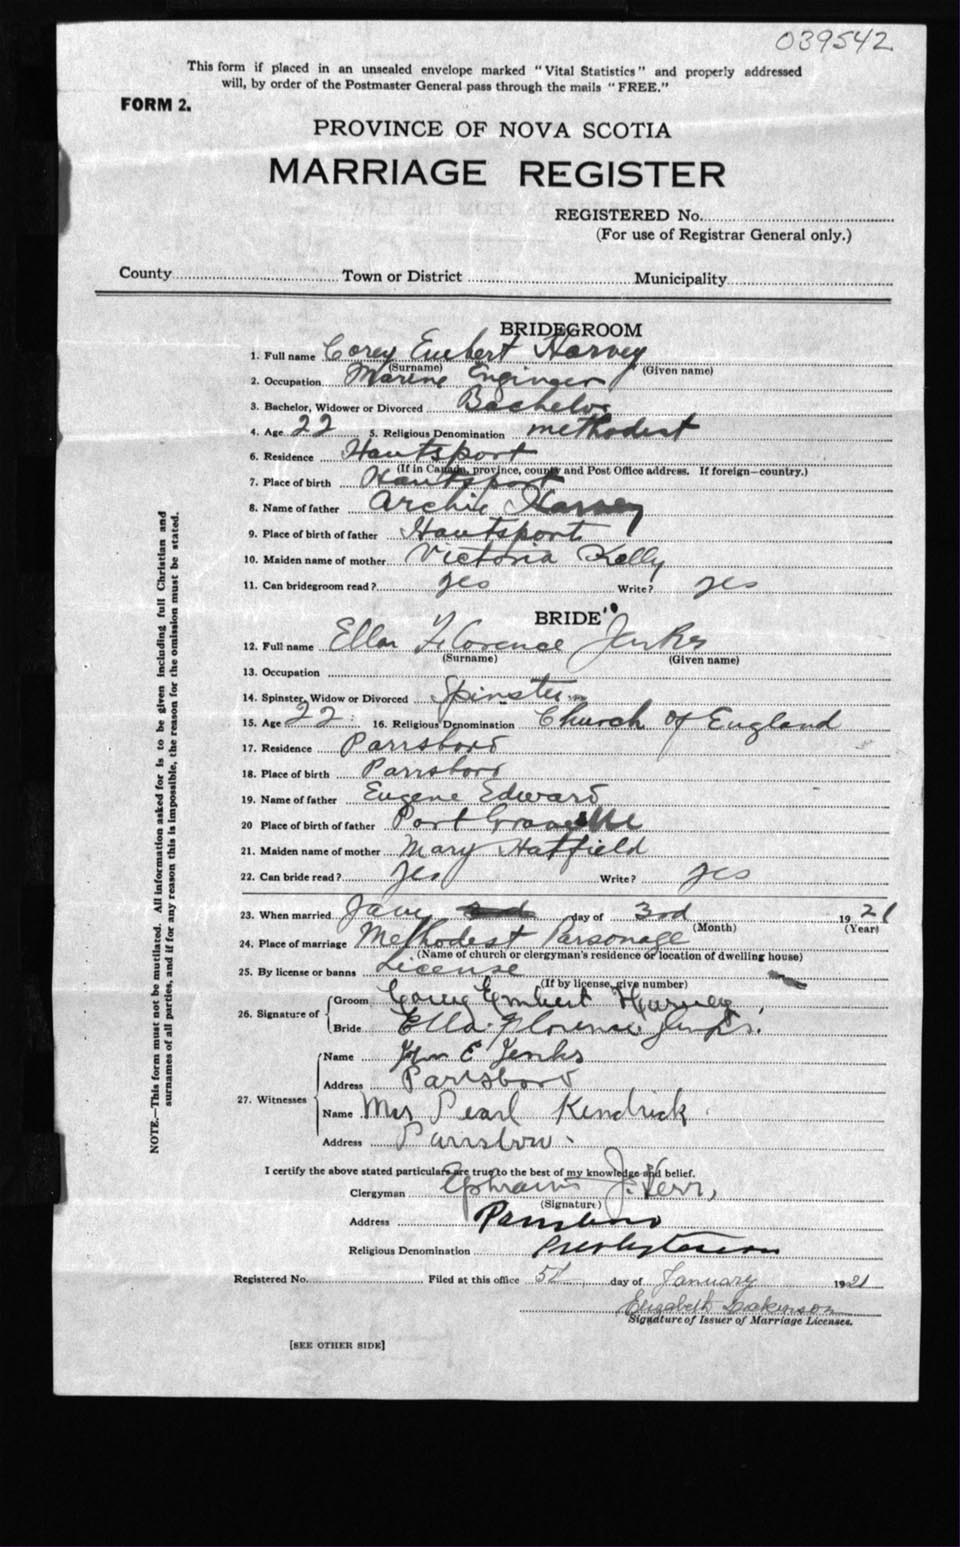 039542
This form if placed in an unsealed envelope marked "Vital Statistics" and properly addressed
will, by order of the Postmaster General pass through the mails "FREE."
FORM 2.
PROVINCE OF NOVA SCOTIA
MARRIAGE REGISTER
REGISTERED No.
(For use of Registrar General only.)
County Town or District Municipality
BRIDEGROOM
1. Full name Corey Harvey
(Surname) (Given name)
2. Occupation Marine Enginer
3. Bachelor, Widower or Divorced Bachelor
4. Age 22 5. Religious Denomination methodest
6. Residence Hantsport
(If in Canada, province, county and Post Office address. If foreign—country.)
7. Place of birth Hantsport
8. Name of father Archie Harvey
9. Place of birth of father Hantsport
10. Maiden name of mother Victoria Kelly
11. Can bridegroom read? yes Write? yes
BRIDE
12. Full name Ella Florence Jenks
(Surname) (Given name)
13. Occupation
14. Spinster, Widow or Divorced Spinster
15. Age 22 16. Religious Denomination Church of England
17. Residence Parrsboro
18. Place of birth Parrsboro
19. Name of father Eugene Edward
20 Place of birth of father Port
21. Maiden name of mother Mary Hatfield
22. Can bride read? yes Write? yes
23. When married Jany day of 3rd 1921
(Month) (Year)
24. Place of marriage Methodest Parsonage
(Name of church or clergyman's residence or location of dwelling house)
25. By license or banns License
(If by license, give number)
26. Signature of Groom Corey Harvey
Bride Ella Florence Jenks.
27. Witnesses Name E Jenks
Address Parrsboro
Name Mrs Pearl Kendrick
Address Parrsboro
I certify the above stated particulars are true to the best of my knowledge and belief.
Clergyman Ephraim J. Kerr,
(Signature)
Address Parrsboro
Religious Denomination Presbyterian
Registered No. Filed at this office 5th day of January 1921
Elizabeth Dakinson
Signature of Issuer of Marriage Licenses.
[SEE OTHER SIDE]
NOTE.—This form must not be mutilated. All information asked for is to be given including full Christian and
surnames of all parties, and if for any reason this is impossible, the reason for the omission must be stated.